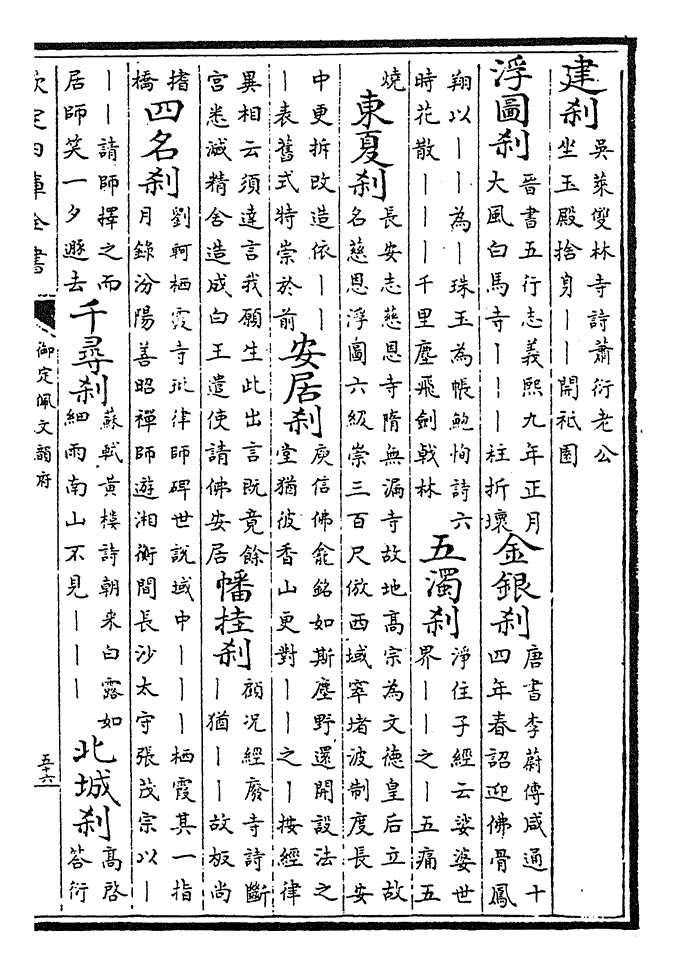 建刹 吳萊雙林寺詩蕭衍老公坐玉殿捨身丨丨開祇園
浮圖刹 晉書五行志義熙九年正月大風白馬寺丨丨丨柱折壞 金銀刹 唐書李蔚傳咸通十四年春詔迎佛骨鳳
翔以丨丨為丨珠玉為帳鮑恂詩六時花散丨丨丨千里塵飛劍戟林 五濁刹 淨住子經云娑婆世界丨丨之丨五痛五
燒 東夏刹 長安志慈恩寺隋無漏寺故地高宗為文德皇后立故名慈恩浮圖六級崇三百尺倣西域窣堵波制度長安
中更拆改造依丨丨丨表舊式特崇於前 安居刹 庾信佛龕銘如斯塵野還開設法之堂猶彼香山更對丨丨之丨按經律
異相云須達言我願生此出言既竟餘宮悉滅精舍造成白王遣使請佛安居 幡挂刹 顧况經廢寺詩斷丨猶丨丨故板尚
搘橋 四名刹 劉軻栖霞寺玭律師碑世說域中丨丨丨栖霞其一指月錄汾陽善昭禪師遊湘衡間長沙太守張茂宗以丨
丨丨請師擇之而居師笑一夕遯去 千尋刹 蘇軾黃樓詩朝来白露如細雨南山不見丨丨丨 北城刹 高啓答衍
欽定四庫全書 御定佩文韻府 五十六